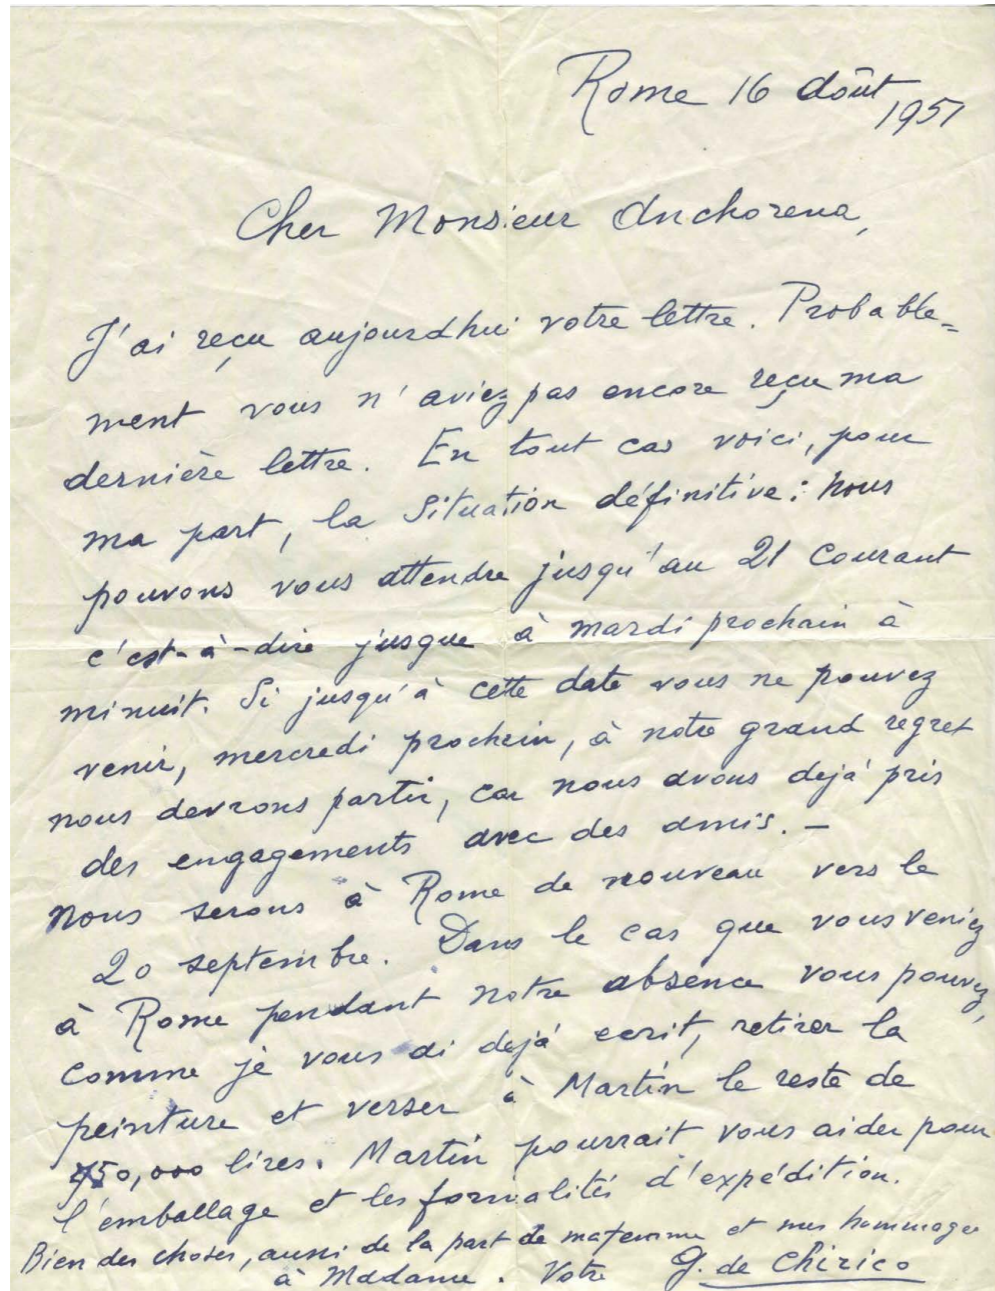 Rome 16 Août
1951
Cher Monsieur Anchorena,
J'ai reçu aujourdhui votre lettre. Probable=
ment vous n'aviez pas encore reçu ma
dernière lettre. En tout cas voici, pour
ma part, la situation définitive: nous
pouvons vous attendre jusqu'au 21 courant
c'est-à-dire jusque à mardi prochain à
minuit. Si jusqu'à cette date vous ne pouvez
venir, mercredi prochein, à notre grand regret
nous devrons partir, car nous avons dejá pris
des engagements avec des amis. —
Nous serons à Rome de nouveau vers le
20 septembre. Dans le cas que vous veniez
à Rome pendant notre absence vous pouvez,
comme je vous ai dejá ecrit, retirer la
peinture et verser à Martin le reste de
50,000 lires. Martin pourrait vous aider pour
l'emballage et les formalités d'expédition.
Bien des choses, aussi de la part de ma femme et mes hommages
à Madame. Votre G. de Chirico